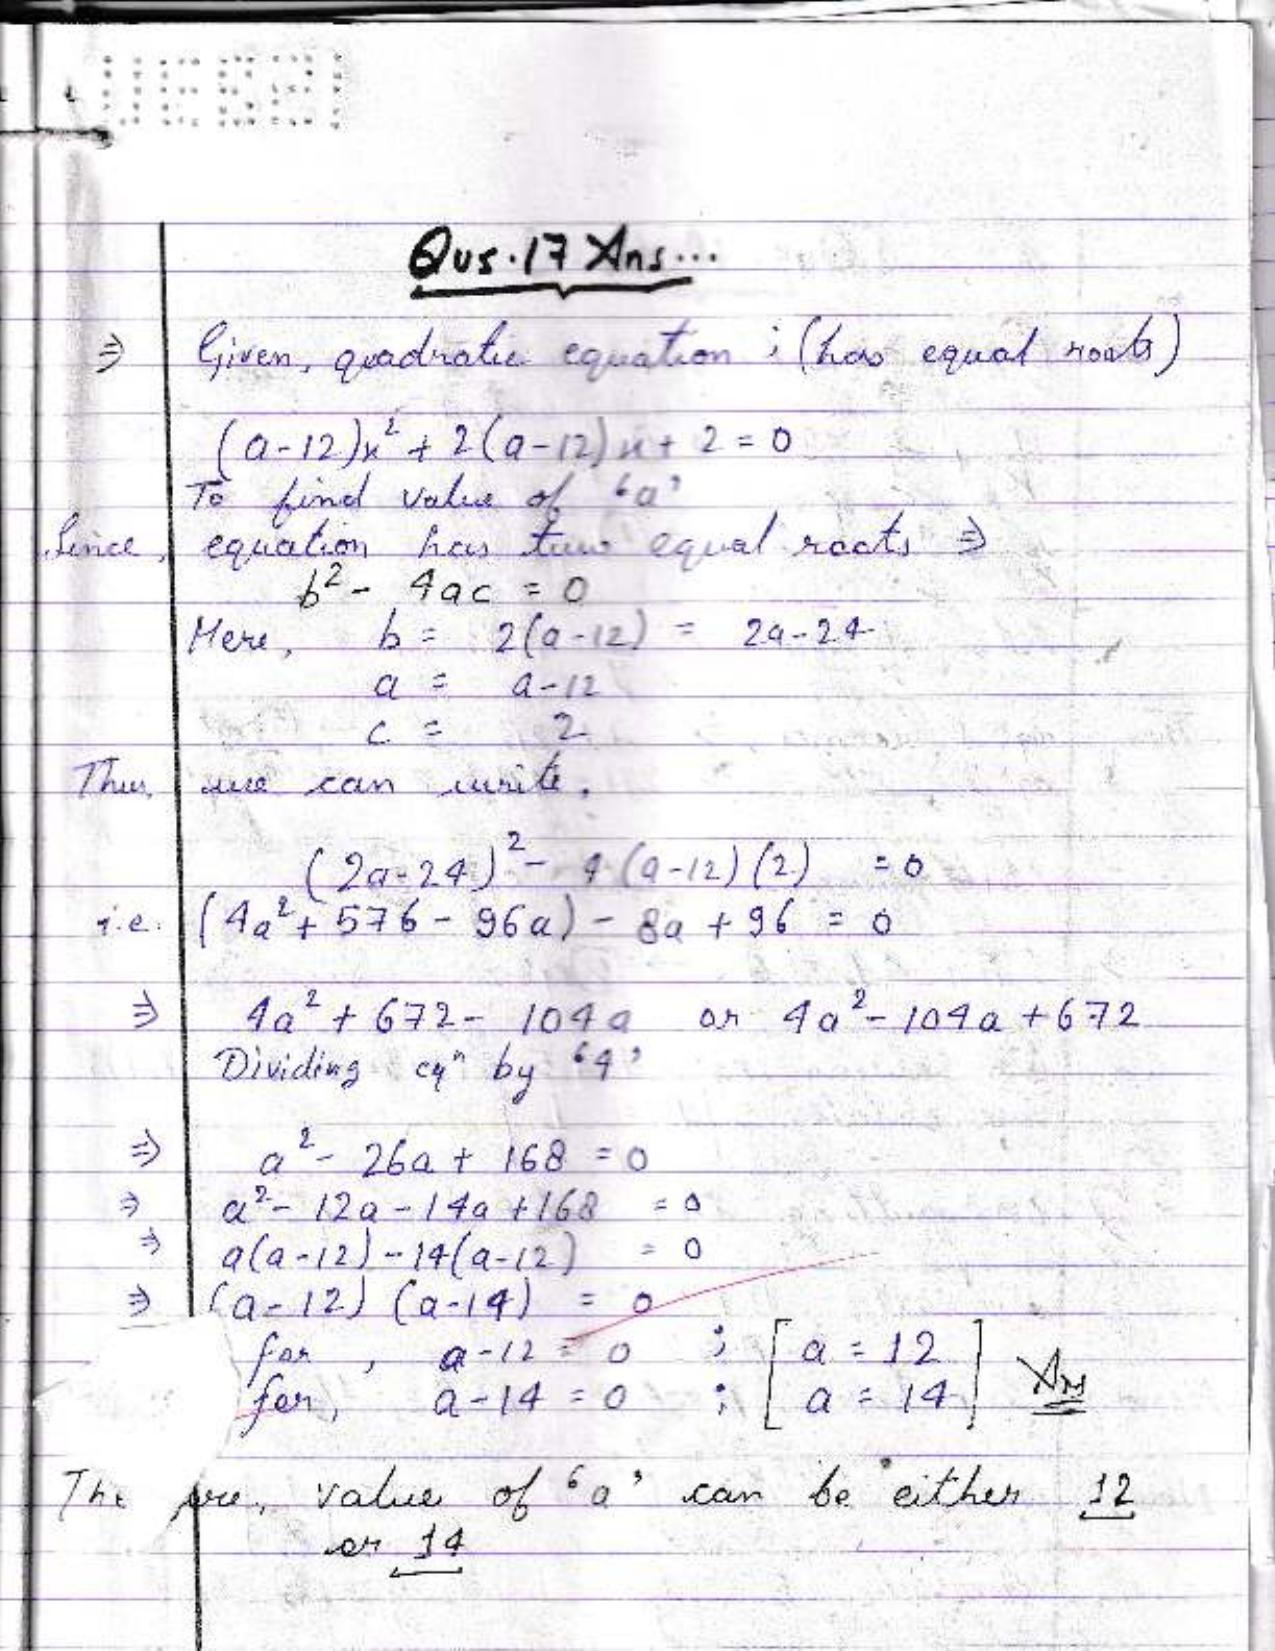 Qus.17 Ans...
⇒ Given, quadratic equation ; (has equal roots)
(a-12)x² + 2(a-12)x + 2 = 0
To find value of 'a'
Since, equation has two equal roots ⇒
b² - 4ac = 0
Here, b = 2(a-12) = 2a-24
a = a-12
c = 2
Thus, we can write,
(2a-24)² - 4(a-12)(2) = 0
i.e. (4a² + 576 - 96a) - 8a + 96 = 0
⇒ 4a² + 672 - 104a or 4a² - 104a + 672
Dividing eqⁿ by '4'
⇒ a² - 26a + 168 = 0
⇒ a² - 12a - 14a + 168 = 0
⇒ a(a-12) - 14(a-12) = 0
⇒ (a-12) (a-14) = 0
for, a-12 = 0 ; [a = 12
for, a-14 = 0 ; a = 14] Ans
The fore, value of 'a' can be either 12
or 14